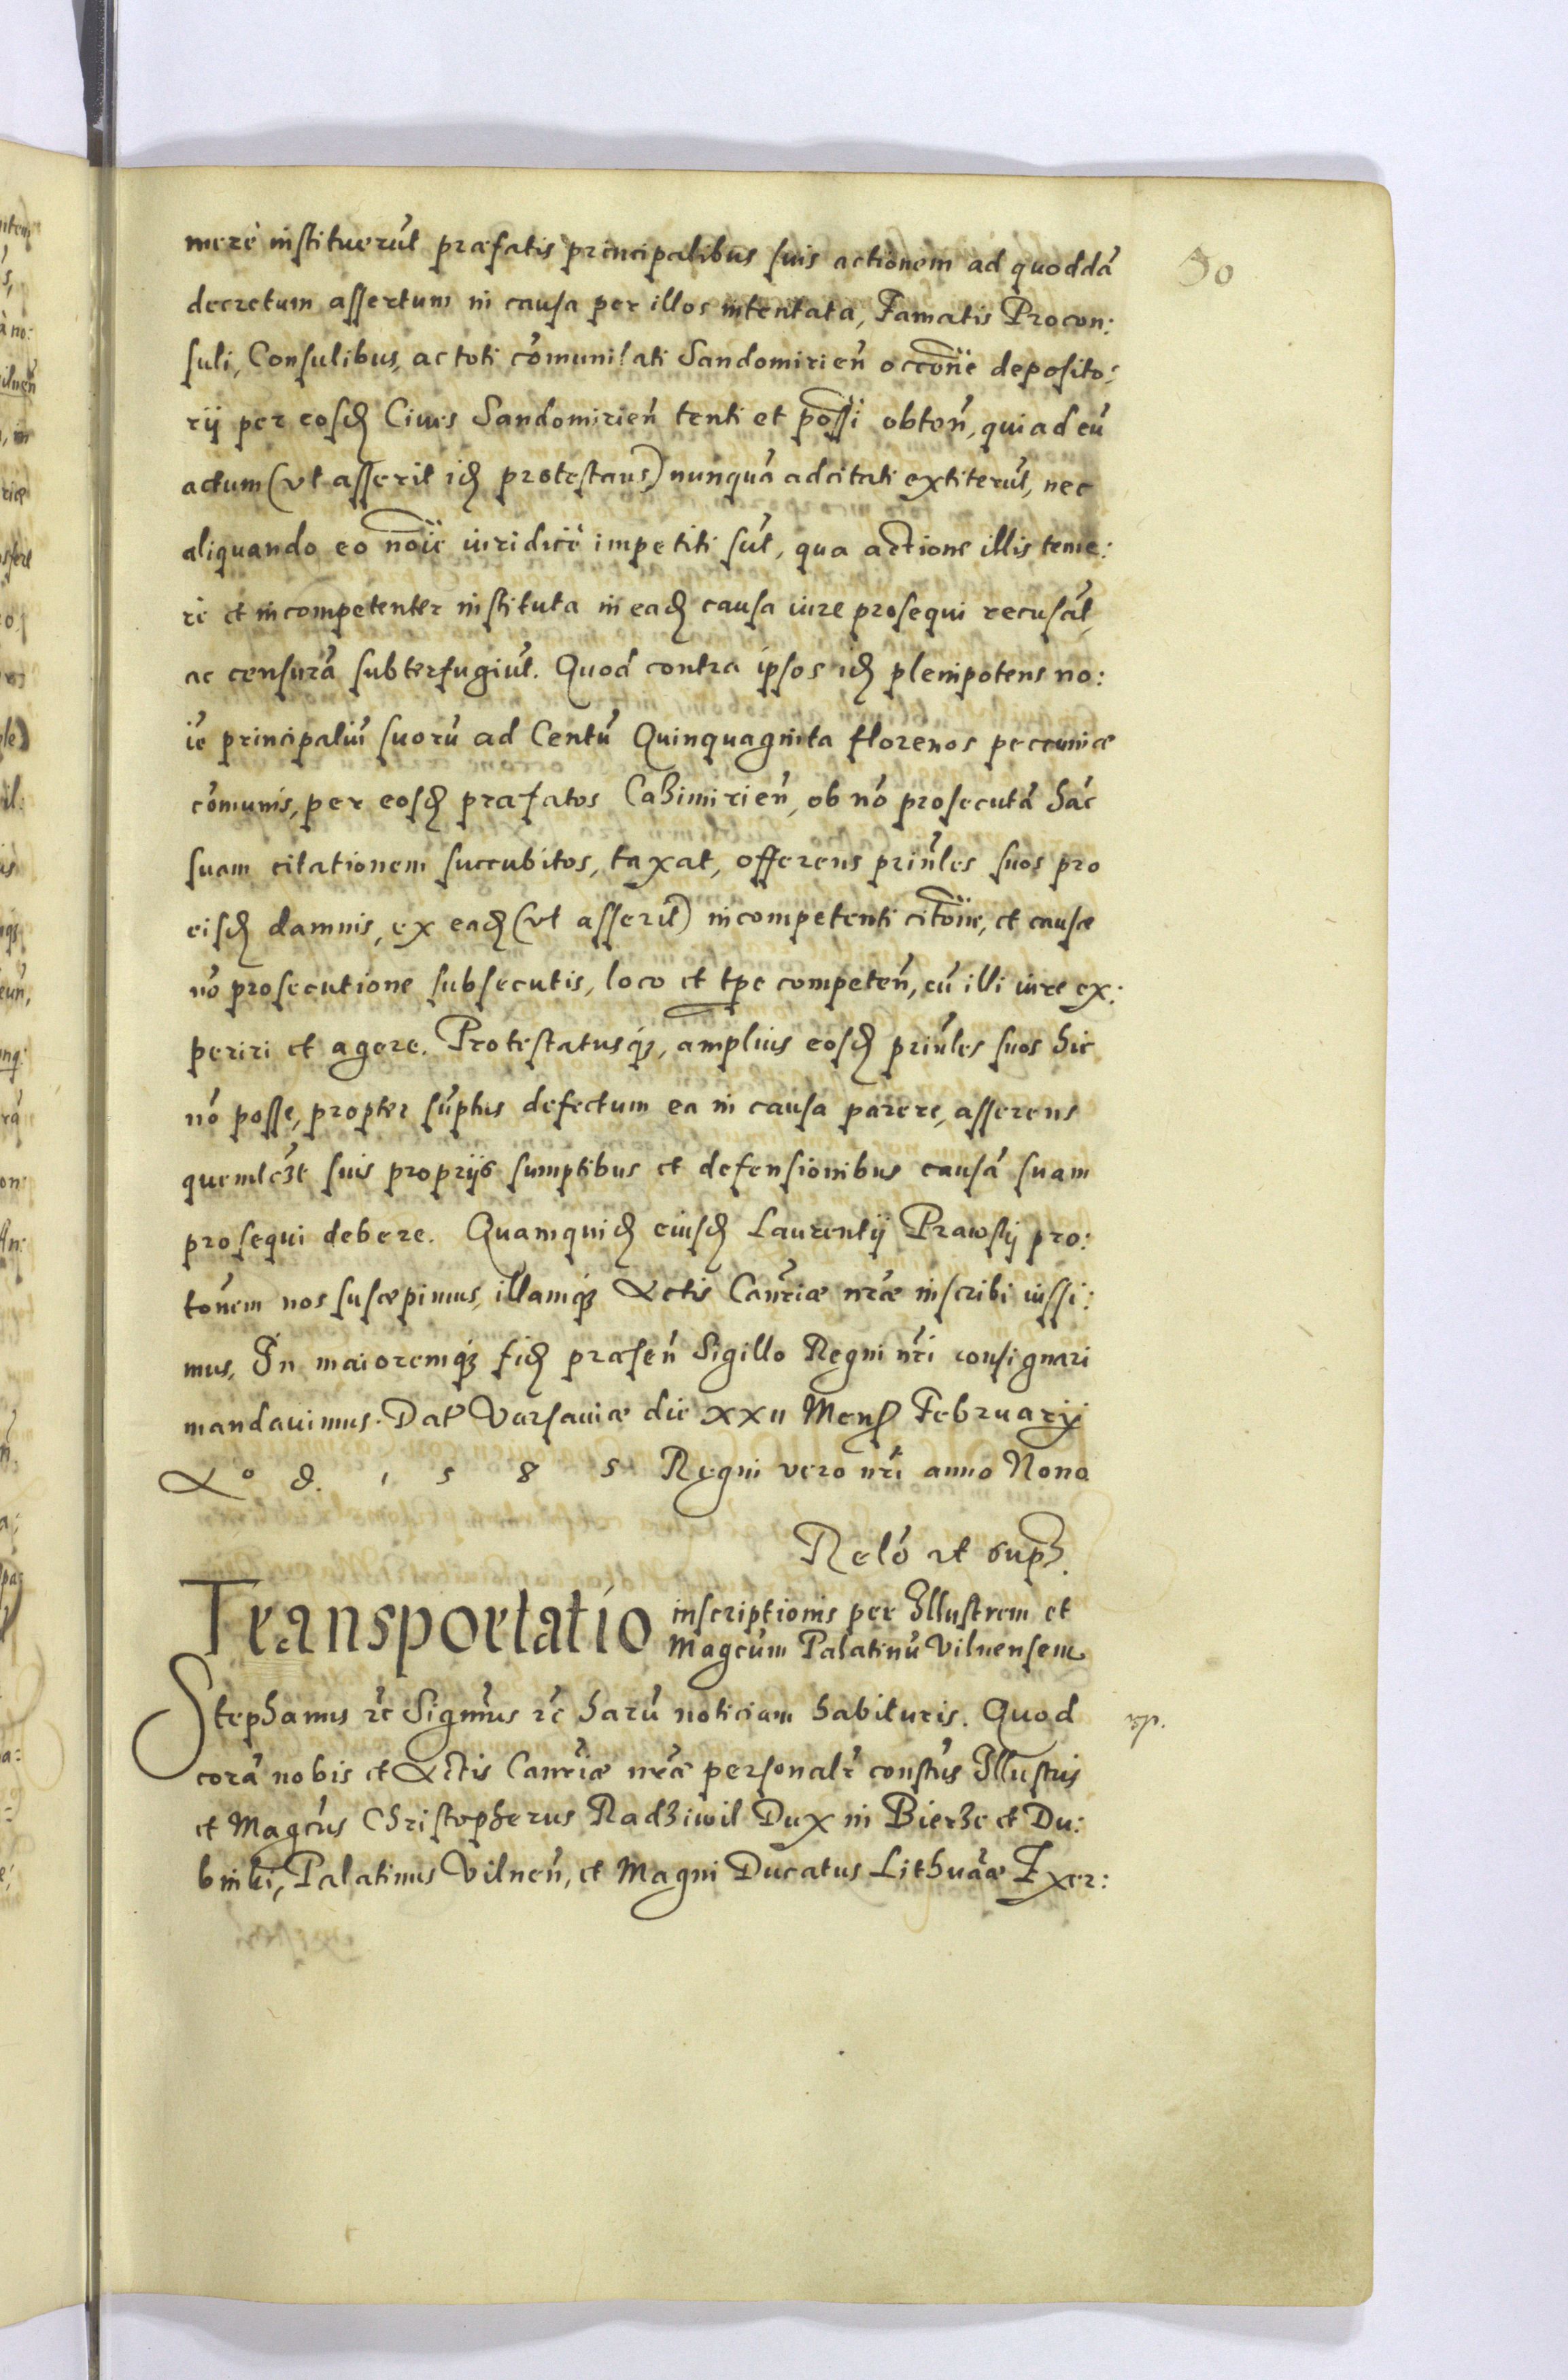 50
merè instituerūt præfatis principalibus suis actionem ad quoddā
decretum assertum in causa per illos intentata, Famatis Procon:
suli, Consulibus, ac toti cōmunitati Sandomirien̄ occōne deposito:
rij per eosd. Ciues Sandomirien̄ tenti et possi obten̄, qui ad eū
actum (vt asserit id. protestans) nunquā adcitati extiterūt, nec
aliquando eo noīe iuridicè impetiti sūt, qua actione illis teme:
rè et incompetenter instituta in ead. causa iure prosequi recusāt,
ac censurā subterfugiūt. Quod contra ipsos id. plenipotens no:
īe principaliū suorū ad Centū Quinquaginta florenos peccuniæ
cōmunis, per eosd. præfatos Cazimirien̄, ob nō prosecutā hāc
suam citationem succubitos, taxat, offerens prīnles suos pro
eisd. damnis, ex ead. (vt asserit) incompetenti citōne, et causæ
nō prosecutione subsecutis, loco et tpe competen̄, cū illi iure ex:
periri et agere. Protestatusq3, amplius eosd. prīnles suos hic
nō posse, propter sūptus defectum ea in causa parere, asserens
quemlib3t suis proprijs sumptibus et defensionibus causā suam
prosequi debere. Quamquid. eiusd. Laurentij Prawskij pro:
tōnem nos suscepimus, illamq3 Actis Canrīæ nræ inscribi iussi:
mus, In maioremq3 fid. præsen̄ Sigillo Regni nrī consignari
mandauimus. Dat Varsauiæ die XXII Mens. Februarij
Aº d. 1 5 8 5 Regni vero nrī anno Nono
Relō vt supra.
Transportatio inscriptionis per Illustrem et
Magcūm Palatinū Vilnensem
Stephanus rc Sigmūs rc harū noticiam habituris. Quod
rp.
corā nobis et Actis Canrīæ nræ personalr constūs Illustris
et Magcūs Christopherus Radziwil Dux in Bierze et Du:
binki, Palatinus Vilnen̄, et Magni Ducatus Lithuāæ Exer: